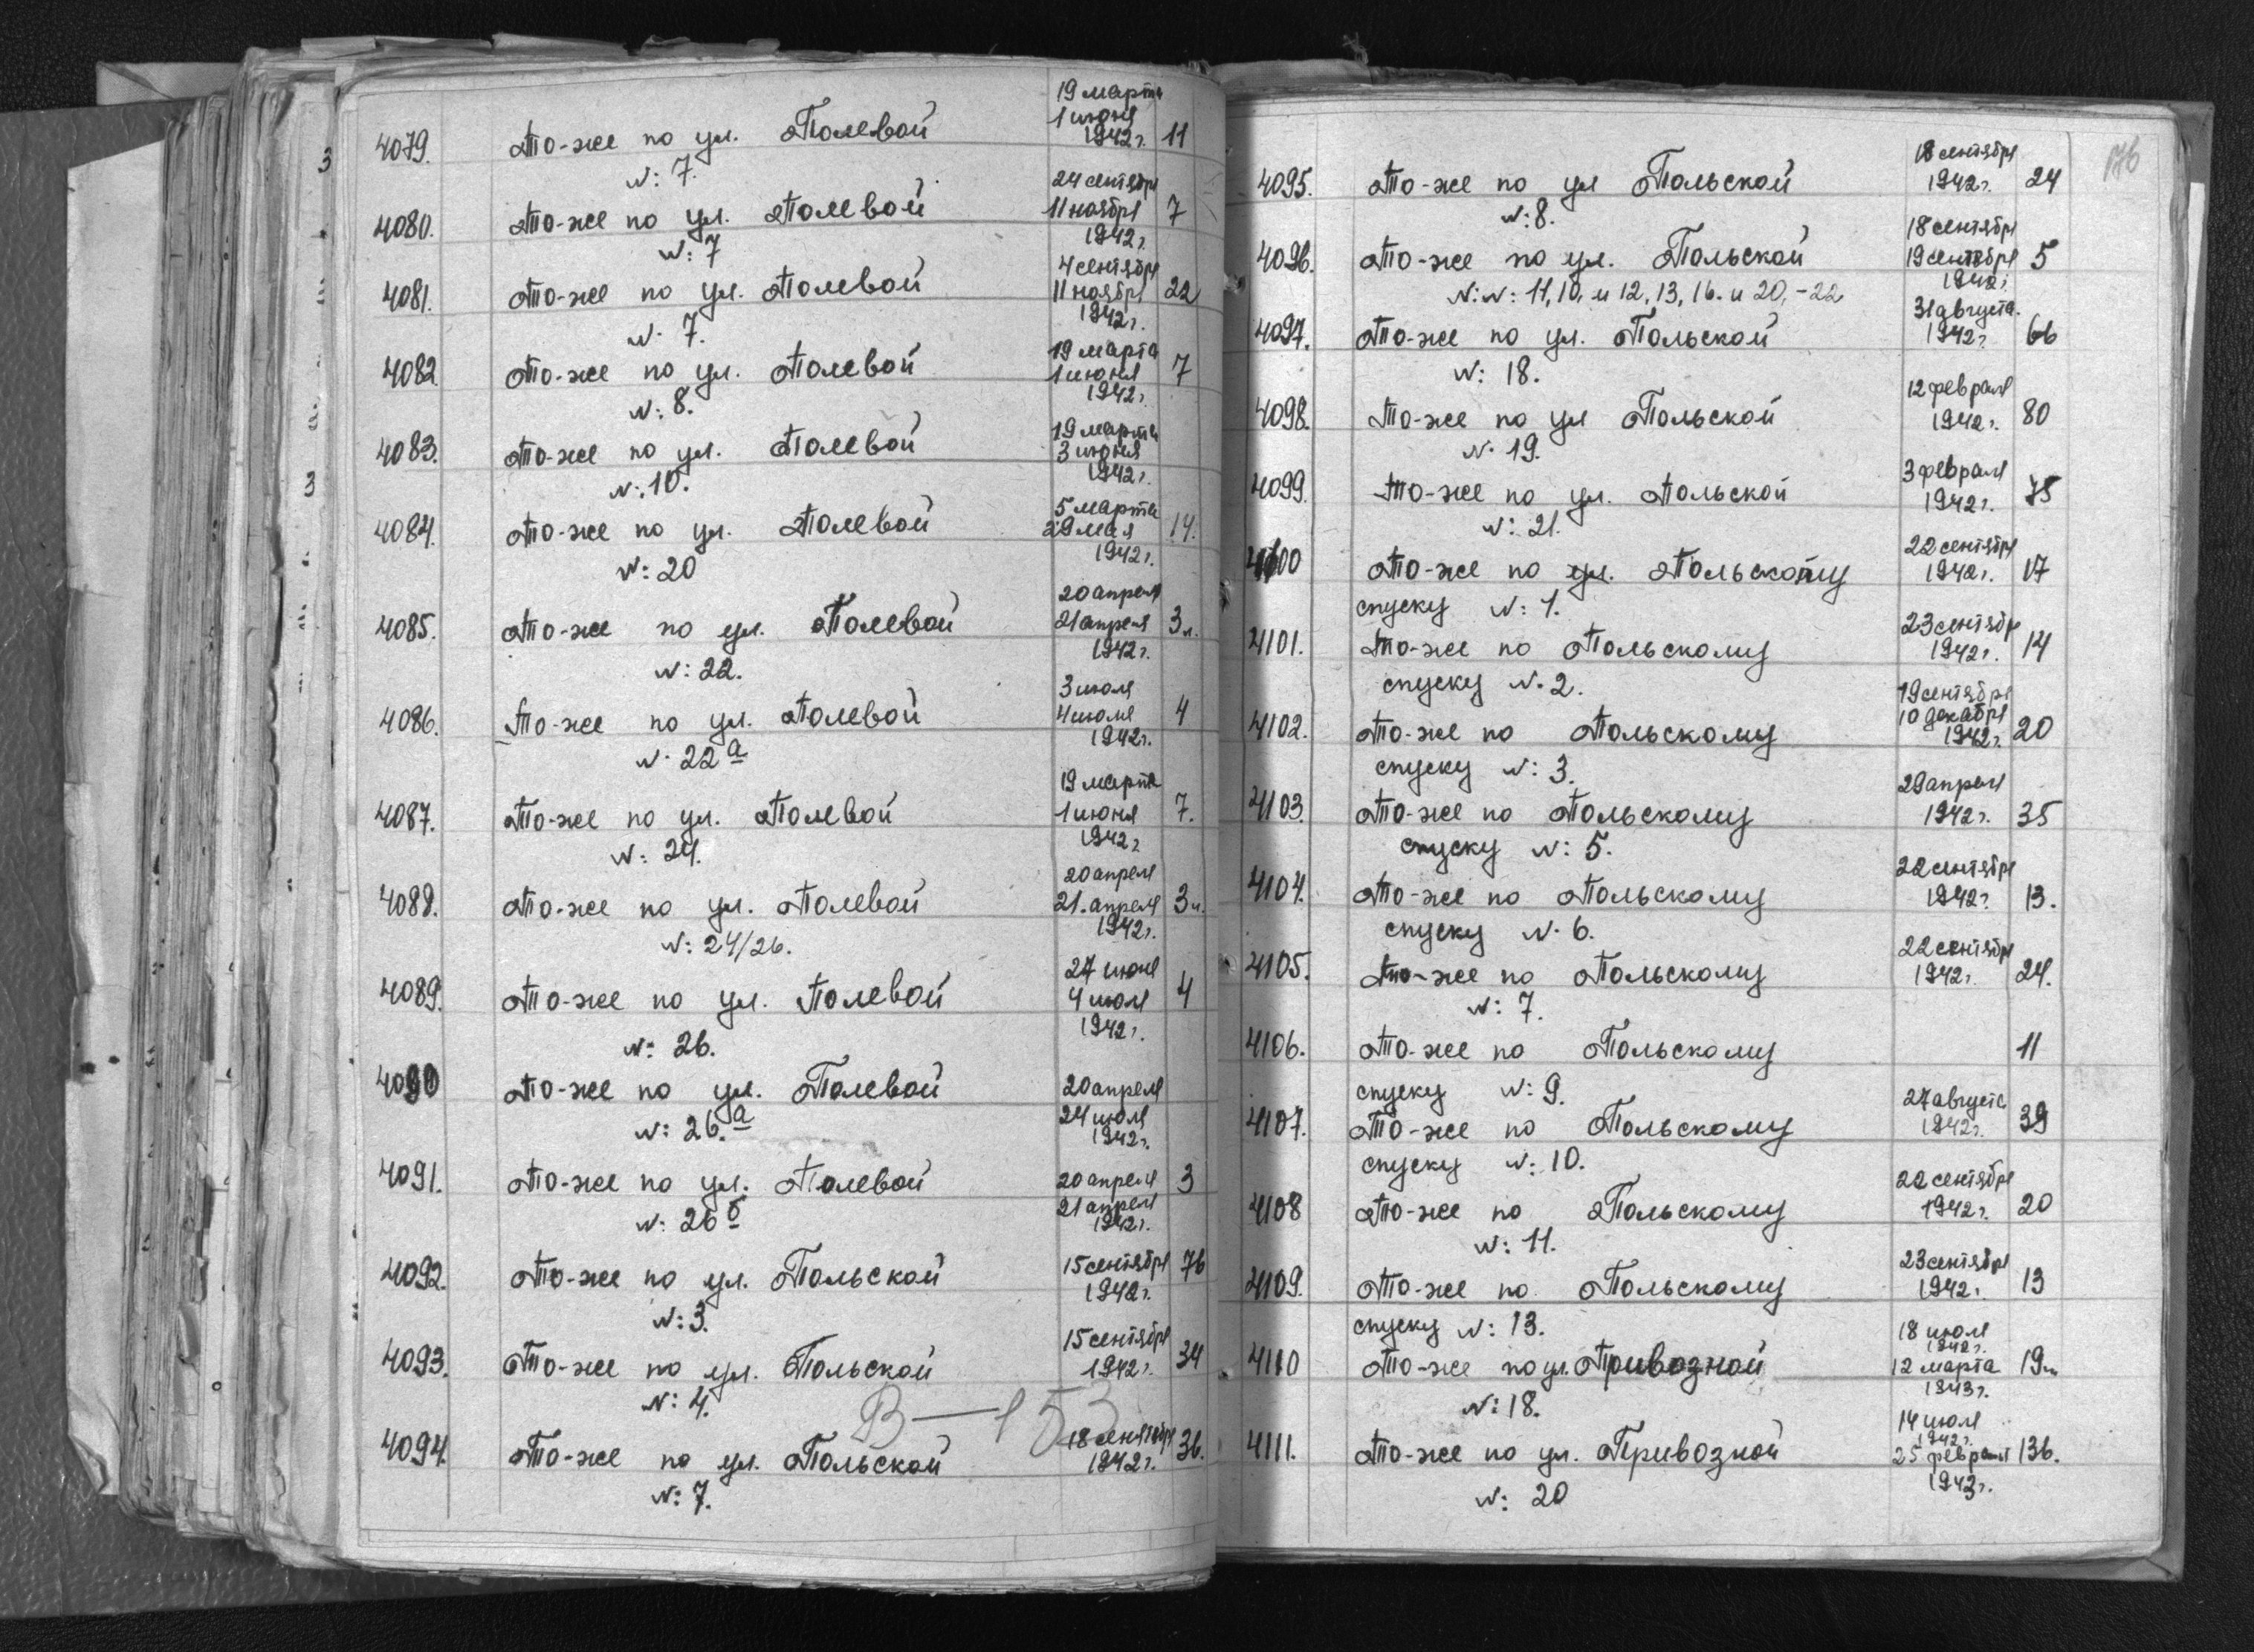 19 марта
1 июня
4079. То-же по ул. Полевой 1942г. 11
N: 7.
24 сентября
4080. То-же по ул. Полевой 11 ноября 7
N: 7 1942г.
4 сентября
4081. То-же по ул. Полевой 11 ноября 22
N: 7. 1942г.
19 марта
4082 То-же по ул. Полевой 1 июня 7
N: 8. 1942г.
19 марта
4083. То-же по ул. Полевой 3 июня
N: 10. 1942г.
5 марта
4084. То-же по ул. Полевой 29 мая 14.
N: 20 1942г.
20 апреля
4085. То-же по ул. Полевой 21 апреля 3 л.
N: 22. 1942г.
3 июля
4086. То-же по ул. Полевой 4 июля 4
N: 22 а 1942г.
19 марта
4087. То-же по ул. Полевой 1 июня 7.
N: 24. 1942г
20 апреля
4088. То-же по ул. Полевой 21. апреля 3 л.
N: 24/26. 1942г.
27 июня
4089. То-же по ул. Полевой 4 июля 4
N: 26. 1942г.
4090 То-же по ул. Полевой 20 апреля
N: 26. а 24 июля
1942г.
4091. То-же по ул. Полевой 20 апреля 3
N: 26 б 21 апреля
1942г.
4092. То-же по ул. Польской 15 сентября 76
N: 3. 1942г.
15 сентября
4093. То-же по ул. Польской 1942г. 34
N: 4.
В — 153
4094. То-же по ул. Польской 18 сентября 36.
N: 7. 1942г.
176
18 сентября
4095. То-же по ул Польской 1942г. 24
N: 8.
18 сентября
4096. То-же по ул. Польской 19 сентября 5
N:N: 11, 10, и 12, 13, 16. и 20, -22 1942г.
31 августа.
4097. То-же по ул. Польской 1942г. 66
N: 18.
12 февраля
4098. То-же по ул Польской 1942г. 80
N: 19.
3 февраля
4099. То-же по ул. Польской 1942г. 75
N: 21.
22 сентября
4100 То-же по ул. Польскому 1942г. 17
спуску N: 1.
23 сентября
4101. То-же по Польскому 1942г. 14
спуску N: 2.
19 сентября
10 декабря
4102. То-же по Польскому 1942г. 20
спуску N: 3.
29 апреля
4103. То-же по Польскому 1942г. 35
спуску N: 5.
22 сентября
4104. То-же по Польскому 1942г. 13.
спуску N: 6.
22 сентября
4105. То-же по Польскому 1942г. 24.
N: 7.
4106. То-же по Польскому 11
спуску N: 9.
27 августа
4107. То-же по Польскому 1942г. 39
спуску N: 10.
22 сентября
4108 То-же по Польскому 1942г. 20
N: 11.
23 сентября
4109. То-же по Польскому 1942г. 13
спуску N: 13.
18 июля
1942г.
4110 То-же по ул. Привозной 12 марта 19л.
N: 18. 1943г.
14 июля
1942г.
4111. То-же по ул. Привозной 25 февраля 136.
N: 20 1943г.